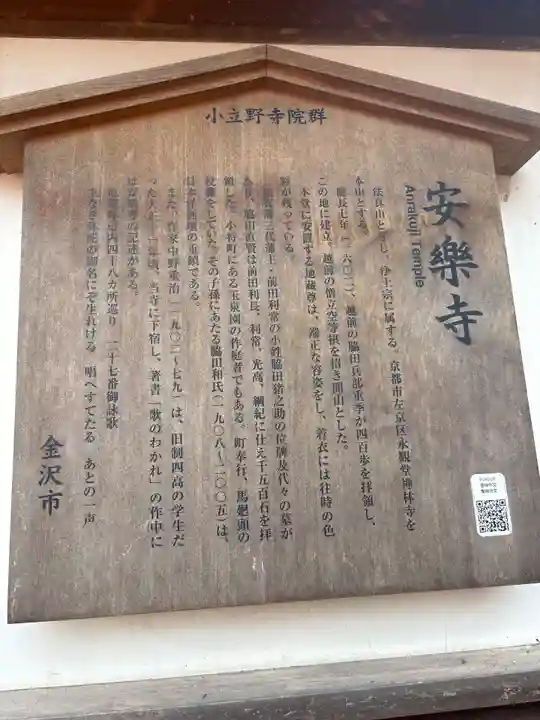 小立野寺院群
安樂寺
Annakuji Temple
法真山と号し、浄土宗に属する。京都市左京区永観堂禅林寺を
本山とする。
慶長七年(一六〇二)、越前の脇田兵部重季が四百歩を拝領し、
この地に建立。越前の僧立空等禎を招き開山とした。
本堂に安置する地蔵尊は、端正な容姿をし、着衣には往時の色
彩が残っている。
三代藩主・前田利常の小姓脇田猪之助の位牌及代々の墓が
脇田直賢は前田利長、利常、光高、綱紀に仕え千五百石を拝
領した。小将町にある玉泉園の作庭者でもある。町奉行、馬廻頭の
役職をしていた。その子孫にあたる脇田和氏(一九〇八〜二〇〇五)は、
日本洋画壇の重鎮である。
また、作家中野重治(一九〇二〜七九)は、旧制四高の学生だ
った大正十二年頃、当寺に下宿し、著書「歌のわかれ」の作中に
は安樂寺の記述がある。
四十八カ所巡り 二十七番御詠歌
御名にぞ生れける 唱へすてたる あとの一声
金沢市